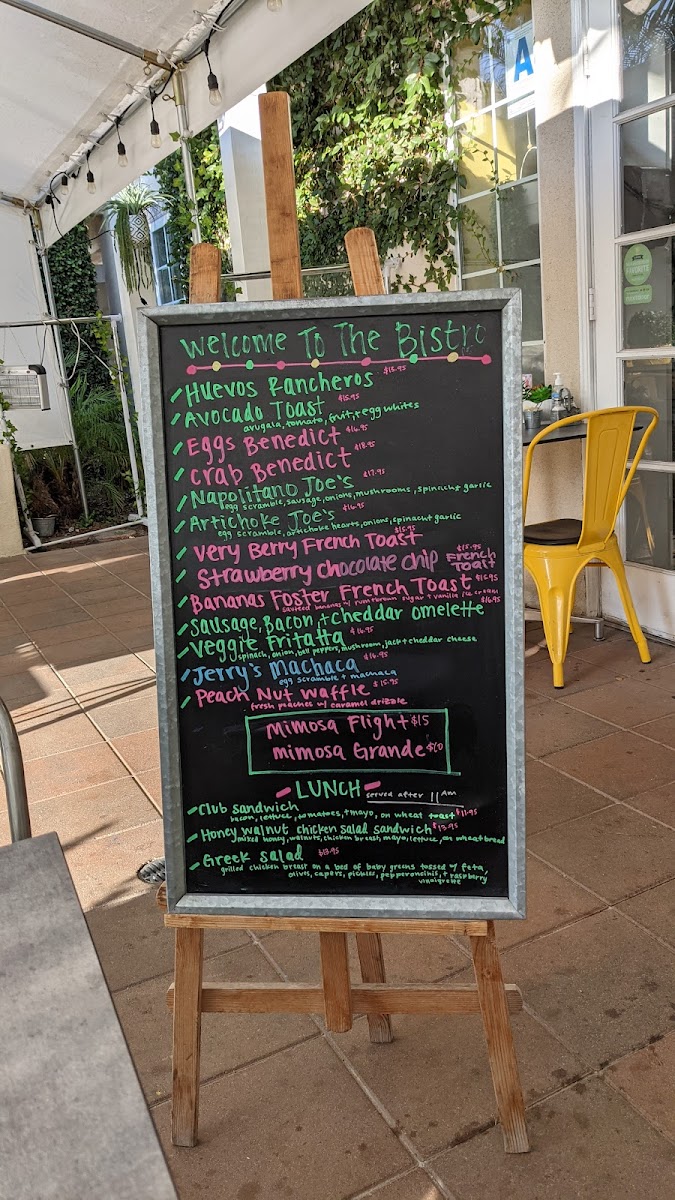 A
Welcome To The Bistro
Huevos Rancheros $15.95
Avocado Toast $15.95
arugala, tomato, fruit, + egg whites
Eggs Benedict $16.95
Crab Benedict $18.95
Napolitano Joe's $17.95
egg scramble, sausage, onions, mushrooms, spinach + garlic
Artichoke Joe's $16.95
egg scramble, artichoke hearts, onions, spinach + garlic
Very Berry French Toast $15.95
Strawberry Chocolate Chip French Toast $15.95
Bananas Foster French Toast $15.95
sauteed bananas w/ rum + brown sugar + vanilla ice cream
Sausage, Bacon, + Cheddar Omelette $16.95
Veggie Fritatta $16.95
spinach, onion, bell peppers, mushroom, jack + cheddar cheese
Jerry's Machaca $16.95
egg scramble + machaca
Peach Nut Waffle $15.95
fresh peaches w/ caramel drizzle
Mimosa Flight $15
Mimosa Grande $10
LUNCH served after 11am
Club Sandwich
bacon, lettuce, tomatoes, + mayo, on wheat toast $11.95
Honey Walnut Chicken Salad Sandwich $13.95
mixed honey, walnuts, chicken breast, mayo, lettuce, on wheat bread
Greek Salad $13.95
grilled chicken breast on a bed of baby greens tossed w/ feta,
olives, capers, pickles, pepperoncinis, + raspberry
vinaigrette